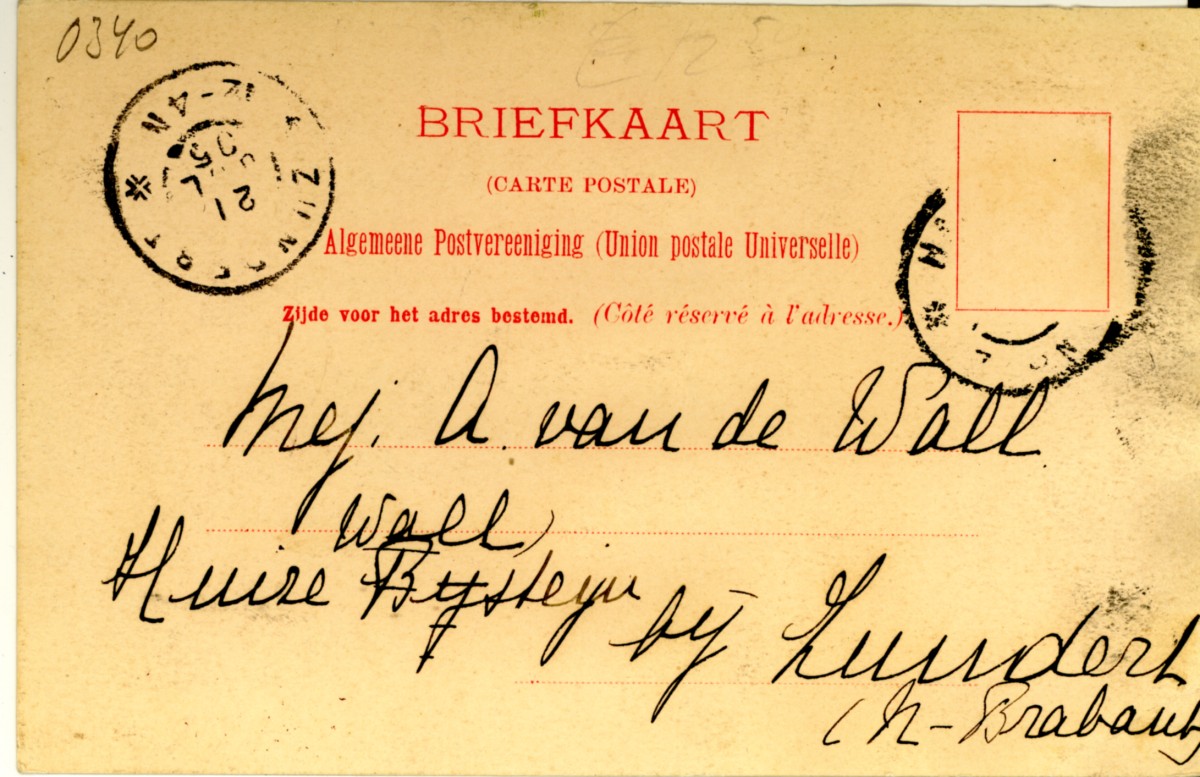 0340
BRIEFKAART
(CARTE POSTALE)
Algemeene Postvereeniging (Union postale Universelle)
Zijde voor het adres bestemd. (Côté réservé à l'adresse.)
ZUNDERT
12-4N
21
JUL
05
Mej. A. van de Wall
Wall,
Huize
bij Zundert
(N-Brabant)